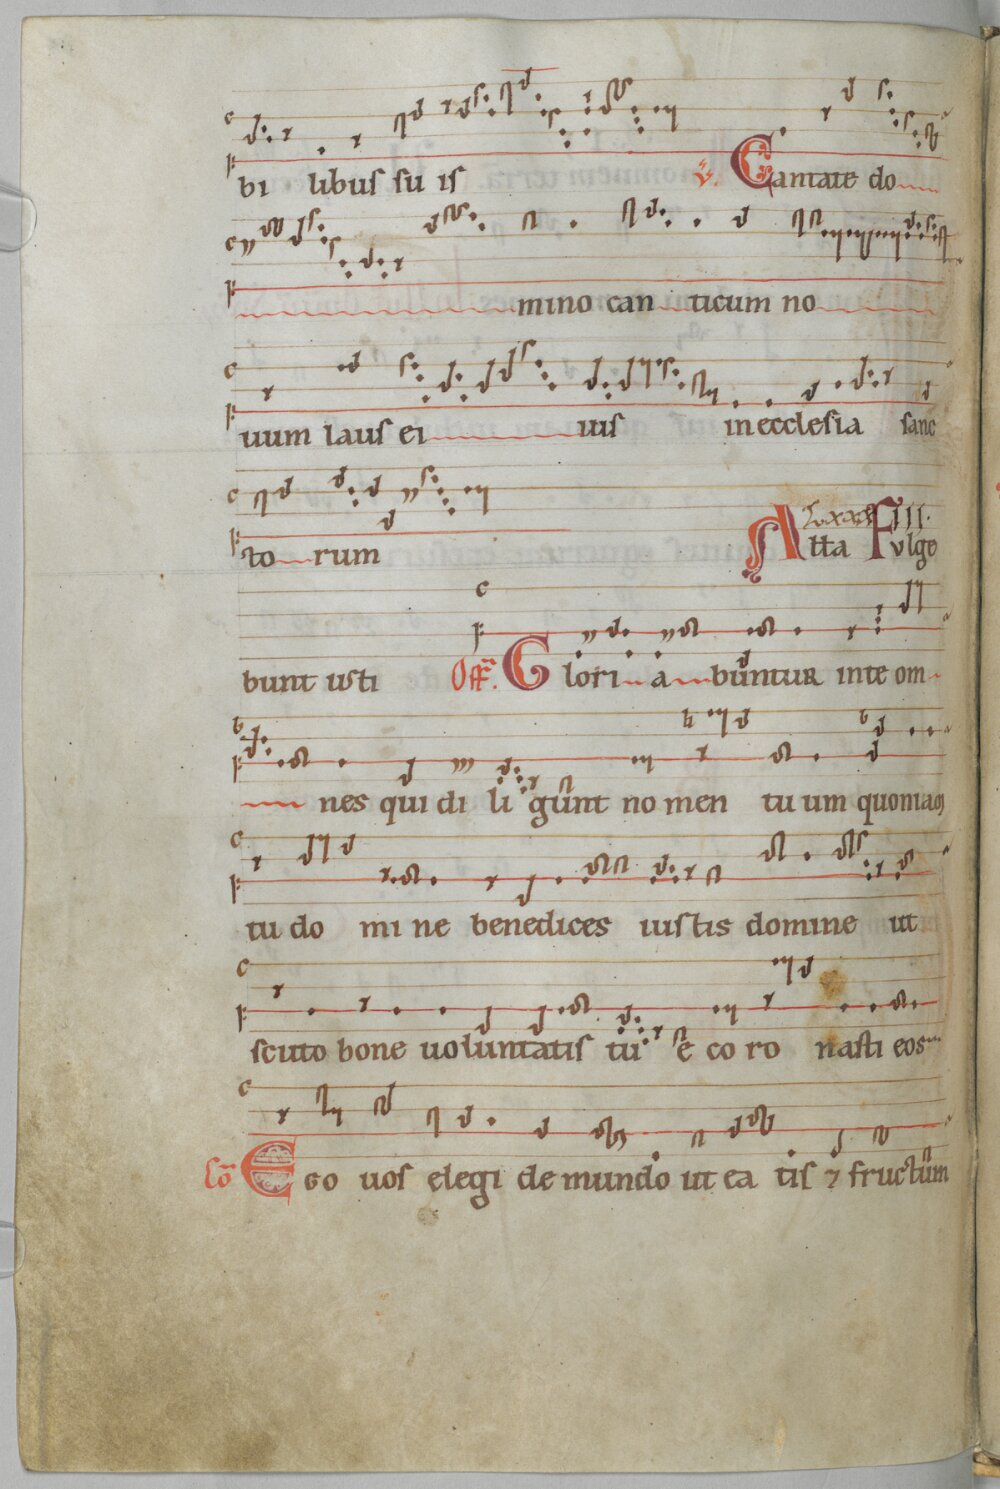 bi libus su is v. Cantate do
mino can ticum no
uum laus ei uus in ecclesia sanc
to rum Alta Fulge
bunt iusti Off. Glori a buntur in te om
nes qui di li gunt no men tu um quoniam
tu do mi ne benedices iustis domine ut
scuto bone uoluntatis tu e co ro nasti eos
Co Ego uos elegi de mundo ut ea tis & fructum